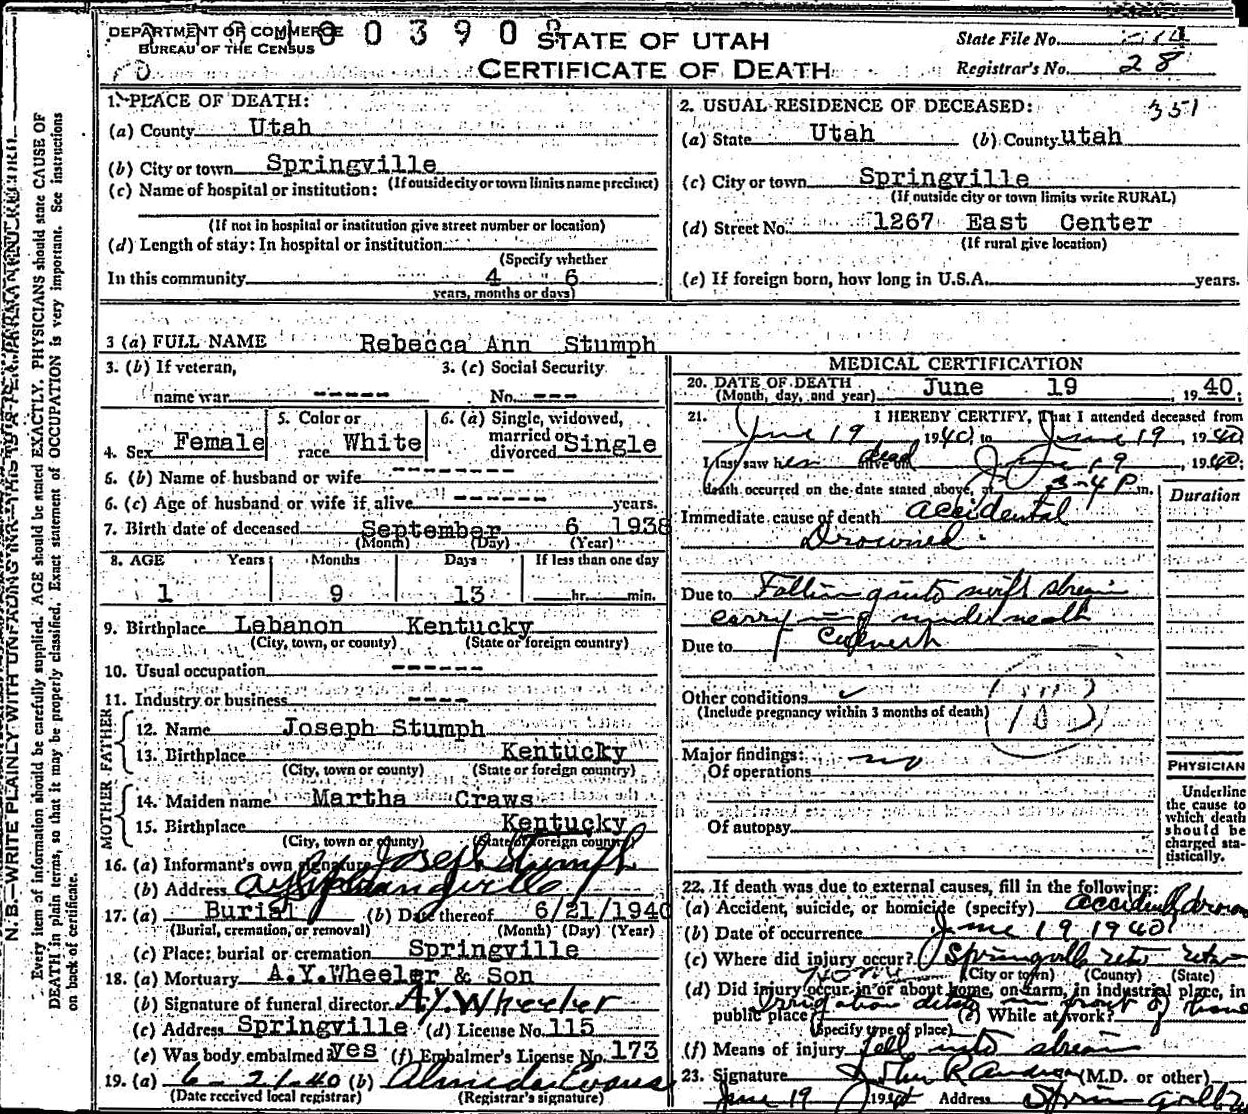 DEPARTMENT OF COMMERCE
BUREAU OF THE CENSUS
0 0 3 9 0
STATE OF UTAH
CERTIFICATE OF DEATH
State File No.
Registrar's No. 28
1. PLACE OF DEATH:
(a) County Utah
(b) City or town Springville
(If outside city or town limits name precinct)
(c) Name of hospital or institution:
(If not in hospital or institution give street number or location)
(d) Length of stay: In hospital or institution
(Specify whether
In this community 4 6
years, months or days)
2. USUAL RESIDENCE OF DECEASED: 351
(a) State Utah (b) County utah
(c) City or town Springville
(If outside city or town limits write RURAL)
(d) Street No. 1267 East Center
(If rural give location)
(e) If foreign born, how long in U.S.A. years.
3 (a) FULL NAME Rebecca Ann Stumph
3. (b) If veteran, name war ----- 3. (c) Social Security No. ---
4. Sex Female 5. Color or race White 6. (a) Single, widowed, married or divorced Single
6. (b) Name of husband or wife --------
6. (c) Age of husband or wife if alive ------ years.
7. Birth date of deceased September 6 1938
(Month) (Day) (Year)
8. AGE Years Months Days If less than one day
1 9 13 hr. min.
9. Birthplace Lebanon Kentucky
(City, town, or county) (State or foreign country)
10. Usual occupation ------
11. Industry or business ----
FATHER
12. Name Joseph Stumph
13. Birthplace Kentucky
(City, town or county) (State or foreign country)
MOTHER
14. Maiden name Martha Craws
15. Birthplace Kentucky
(City, town or county) (State of foreign country)
16. (a) Informant's own signature Joseph Stumph
(b) Address Springville
17. (a) Burial (b) Date thereof 6/21/1940
(Burial, cremation, or removal) (Month) (Day) (Year)
(c) Place: burial or cremation Springville
18. (a) Mortuary A.Y.Wheeler & Son
(b) Signature of funeral director A.Y. Wheeler
(c) Address Springville (d) License No. 115
(e) Was body embalmed yes (f) Embalmer's License No. 173
19. (a) 6-21-40 (b) Almeda Evans
(Date received local registrar) (Registrar's signature)
MEDICAL CERTIFICATION
20. DATE OF DEATH June 19 , 1940;
(Month, day, and year)
21. I HEREBY CERTIFY, That I attended deceased from
June 19 1940 to June 19, 1940
I last saw her dead alive on June 19, 1940;
death occurred on the date stated above, at 3-4 P m.
Duration
Immediate cause of death accidental
Drowned
Due to Falling into swift stream
carrying underneath
Due to Culvert
Other conditions
(Include pregnancy within 3 months of death)
Major findings:
Of operations no
Of autopsy
PHYSICIAN
Underline
the cause to
which death
should be
charged sta-
tistically.
22. If death was due to external causes, fill in the following:
(a) Accident, suicide, or homicide (specify)
(b) Date of occurrence June 19 1940
(c) Where did injury occur? Springville
(City or town) (County) (State)
(d) Did injury occur in or about home, on farm, in industrial place, in
Home
public place Irrigation ditch in front of (e) While at work?
(Specify type of place)
(f) Means of injury fell into stream
23. Signature (M.D. or other)
June 19 1940 Address Springville
N.B.—WRITE PLAINLY WITH UNFADING INK—THIS IS A PERMANENT RECORD
Every item of information should be carefully supplied. AGE should be stated EXACTLY. PHYSICIANS should state CAUSE OF
DEATH in plain terms, so that it may be properly classified. Exact statement of OCCUPATION is very important. See instructions
on back of certificate.